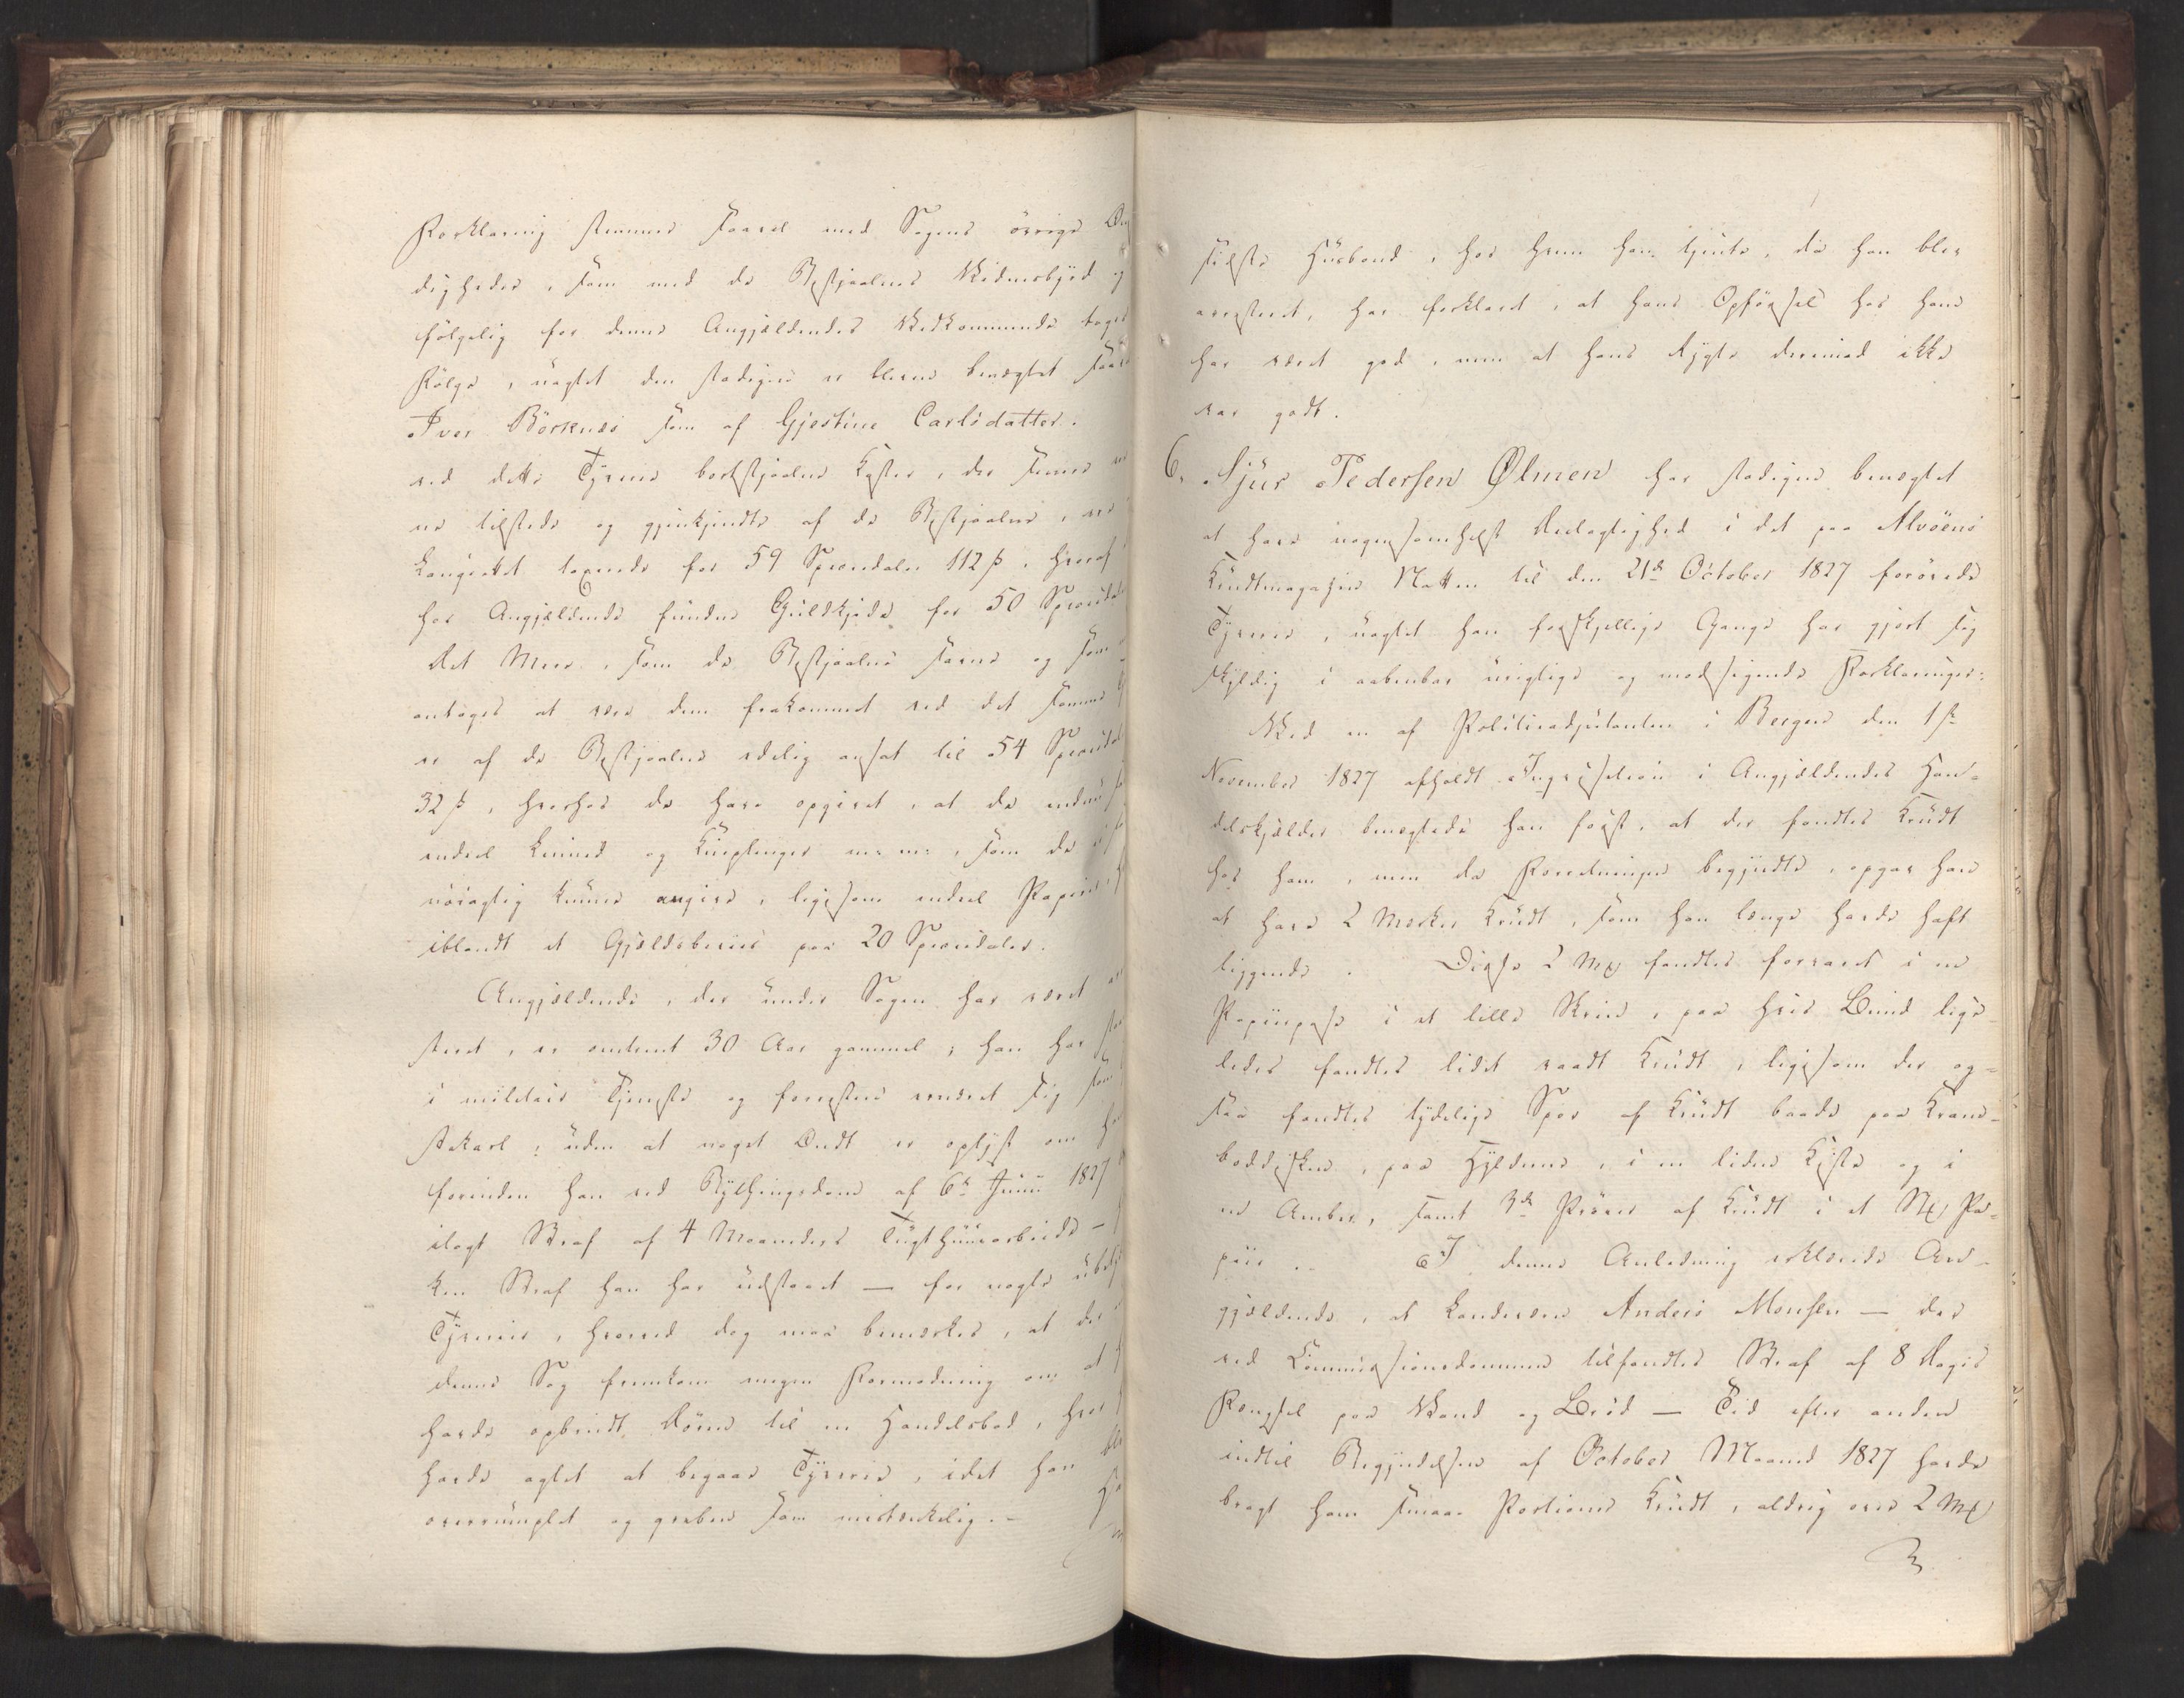 Forklaring stemmer saavel med Sagens øvrige
digheder, som med de Bestjaalnes Vidnesbyrd og
følgelig for denne Angjældendes Vedkommende tages
Følge, uagtet den stadigen er bleven benægtet saavel
Iver Börsnes som af Gjestine Carlsdatter.
ved dette Tyverie bortstjaalne Koster, der senere
ne tilstede og gjenkjendte af de Bestjaalne, ere
Langrettet taxerede for 59 Speciedaler 112 ß, hvoraf
hos Angjældende fundne Guldkjæde for 50 Speciedaler
Det Mere, som de Bestjaalne savne og som
antages at være dem frakommet ved det samme
er af de Bestjaalne edelig ansat til 54 Speciedaler
32 ß, hvorhos de have opgivet, at de endnu
endeel Linned og Kniplinger m: m:, som de
nöiagtig kunne angive, ligesom endeel Papirer,
iblandt et Gjældsbeviis paa 20 Speciedaler.
Angjældende, der under Sagen har været
steret, er omtrent 30 Aar gammel; han har
i militair Tjeneste og forresten ernæret sig som
stekarl, uden at noget Ondt er oplyst om
forinden han ved Bythingsdom af 6te Junii 1827
ilagt Straf af 4 Maaneders Tugthuusarbeide –
ken Straf han har udstaaet – for nogle ubety
Tyverier, hvorved dog maa bemærkes, at der
denne Sag fremkom megen Formodning om at
havde opbrudt Døren til en Handelsbod, hvor
havde agtet at begaae Tyverie, idet han blev
overrumplet og greben som mistænkelig. –
sidste Huusbond, hos hvem han tjente, da han blev
arresteret, har forklaret, at hans Opförsel hos ham
har været god, men at hans Rygte derimod ikke
var godt.
6. Sjur Pedersen Ølmen har stadigen benægtet
at have nogensomhelst Deelagtighed i det paa Alvöens
Krudtmagasin Natten til den 21de October 1827 forövede
Tyverie, uagtet han forskjellige Gange har gjort sig
skyldig i aabenbar urigtige og modsigende Forklaringer.
Ved en af Politieadjutanten i Bergen den 1ste
November 1827 afholdt Inqvisition i Angjældendes Han-
delskjælder benegtede han först, at der fandtes Krudt
hos ham, men da Forretningen begyndte, opgav han
at have 2 Merker Krudt, som han længe havde haft
liggende. Disse 2 Mk fandtes forvaret i en
Papiirpose i et lille Skriin, paa hvis Bund lige-
ledes fandtes lidet vaadt Krudt, ligesom der og-
saa fandtes tydelige Spor af Krudt baade paa Kram-
boddisken, paa Hylderne, i en liden Kiste og i
en Amber, samt 3de Prøver af Krudt i et Stk Pa-
piir. I denne Anledning erklærede An-
gjældende, at Landværn Anders Monsen – der
ved Commissionsdommen tilfandtes Straf af 8 Dages
Fengsel paa Vand og Bröd – Tid efter anden
indtil Begyndelsen af October Maaned 1827 havde
bragt ham smaae Portioner Krudt, aldrig over 2 Mk